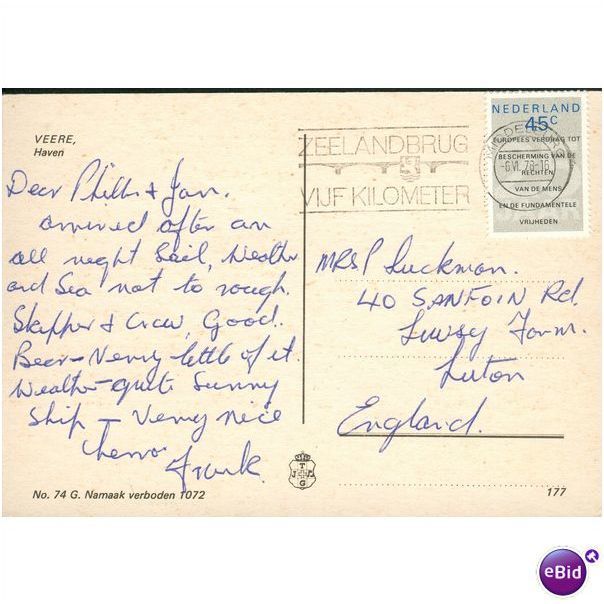 VEERE,
Haven
Dear Phillis & Jan.
arrived after an
all night Sail, Weather
and Sea not to rough.
Skipper & Crew, Good.
Beer - Very little of it.
Weather - quite Sunny
Ship - Very nice
Cheerio
Frank.
No. 74 G. Namaak verboden 1072
ZEELANDBRUG
VIJF KILOMETER
-6.VI.78-16
NEDERLAND
45c
EUROPEES VERDRAG TOT
BESCHERMING VAN DE
RECHTEN
VAN DE MENS
EN DE FUNDAMENTELE
VRIJHEDEN
MRS P Luckman.
40 SANFOIN Rd.
Lewsey Farm.
Luton
England.
T
G
177
eBid